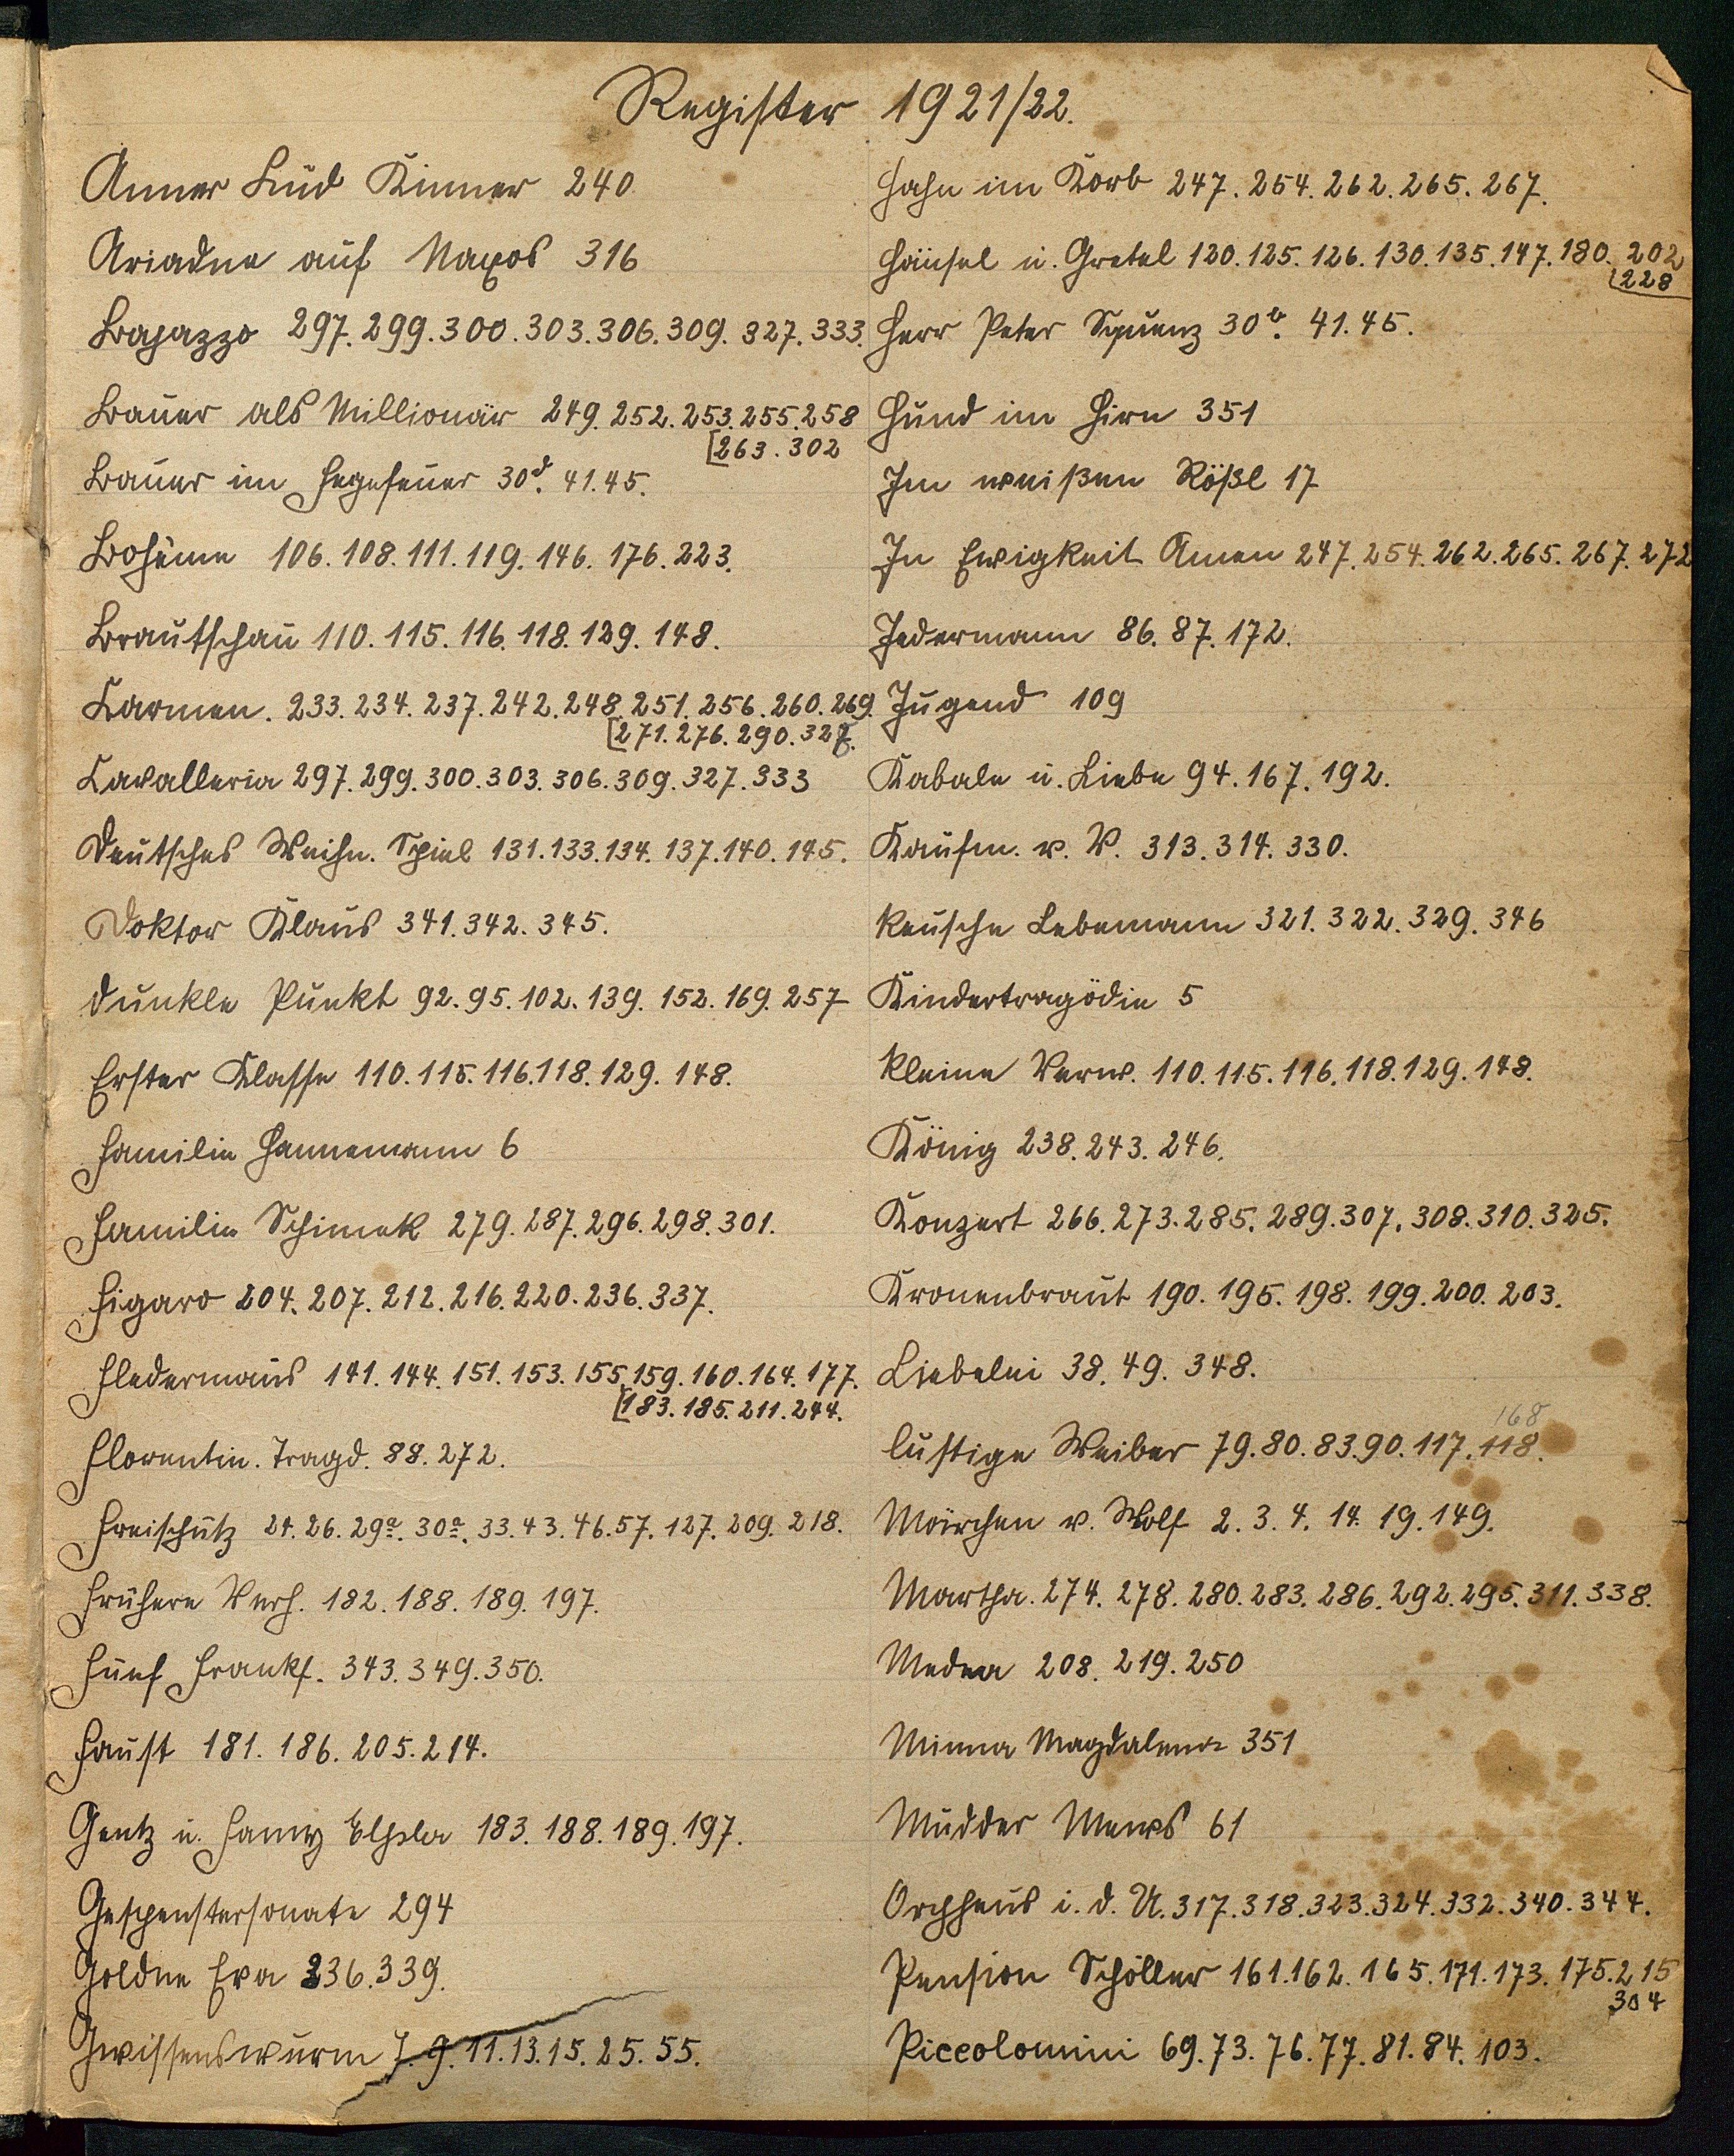 Register 1921/22.
Anner Lüd Kinner 240
Ariadne auf Naxos 316
Bajazzo 297. 299. 300. 303. 306. 309. 327. 333.
Bauer als Millionär 249. 252. 253. 255. 258
[263. 302
Bauer im Fegefeuer 30d. 41. 45.
Bohème 106. 108. 111. 119. 146. 176. 223.
Brautschau 110. 115. 116. 118. 129. 148.
Carmen. 233. 234. 237. 242. 248. 251. 256. 260. 269.
[271. 276. 290. 327.
Cavalleria 297. 299. 300. 303. 306. 309. 327. 333
Deutsches Weihn. Spiel 131. 133. 134. 137. 140. 145.
Doktor Klaus 341. 342. 345.
dunkle Punkt 92. 95. 102. 139. 152. 169. 257
Erster Klasse 110. 115. 116. 118. 129. 148.
Familie Hannemann 6
Familie Schimek 279. 287. 296. 298. 301.
Figaro 204. 207. 212. 216. 220. 236. 337.
Fledermaus 141. 144. 151. 153. 155. 159. 160. 164. 177.
[183. 185. 211. 244.
Florentin. Tragd. 88. 272.
Freischütz 24. 26. 29a. 30a. 33. 43. 46. 57. 127. 209. 218.
Frühere Verh. 182. 188. 189. 197.
Fünf Frankf. 343. 349. 350.
Faust 181. 186. 205. 214.
Gentz u. Fanny Elßler 183. 188. 189. 197.
Gespenstersonate 294
Goldne Eva 336. 339.
Gwissenswurm 7. 9. 11. 13. 15. 25. 55.
Hahn im Korb 247. 254. 262. 265. 267.
Hänsel u. Gretel 120. 125. 126. 130. 135. 147. 180. 202
[228
Herr Peter Squenz 30b. 41. 45.
Hund im Hirn 351
Im weißen Rößl 17
In Ewigkeit Amen 247. 254. 262. 265. 267. 272
Jedermann 86. 87. 172.
Jugend 109
Kabale u. Liebe 94. 167. 192.
Kaufm. v. V. 313. 314. 330.
keusche Lebemann 321. 322. 329. 346
Kindertragödie 5
kleine Verw. 110. 115. 116. 118. 129. 148.
König 238. 243. 246.
Konzert 266. 273. 285. 289. 307. 308. 310. 325.
Kronenbraut 190. 195. 198. 199. 200. 203.
Liebelei 38. 49. 348.
168
lustige Weiber 79. 80. 83. 90. 117. 118.
Märchen v. Wolf 2. 3. 4. 14. 19. 149.
Martha. 274. 278. 280. 283. 286. 292. 295. 311. 338.
Medea 208. 219. 250
Minna Magdalena 351
Mudder Mews 61
Orpheus i. d. U. 317. 318. 323. 324. 332. 340. 344.
Pension Schöller 161. 162. 165. 171. 173. 175. 215
304
Piccolomini 69. 73. 76. 77. 81. 84. 103.